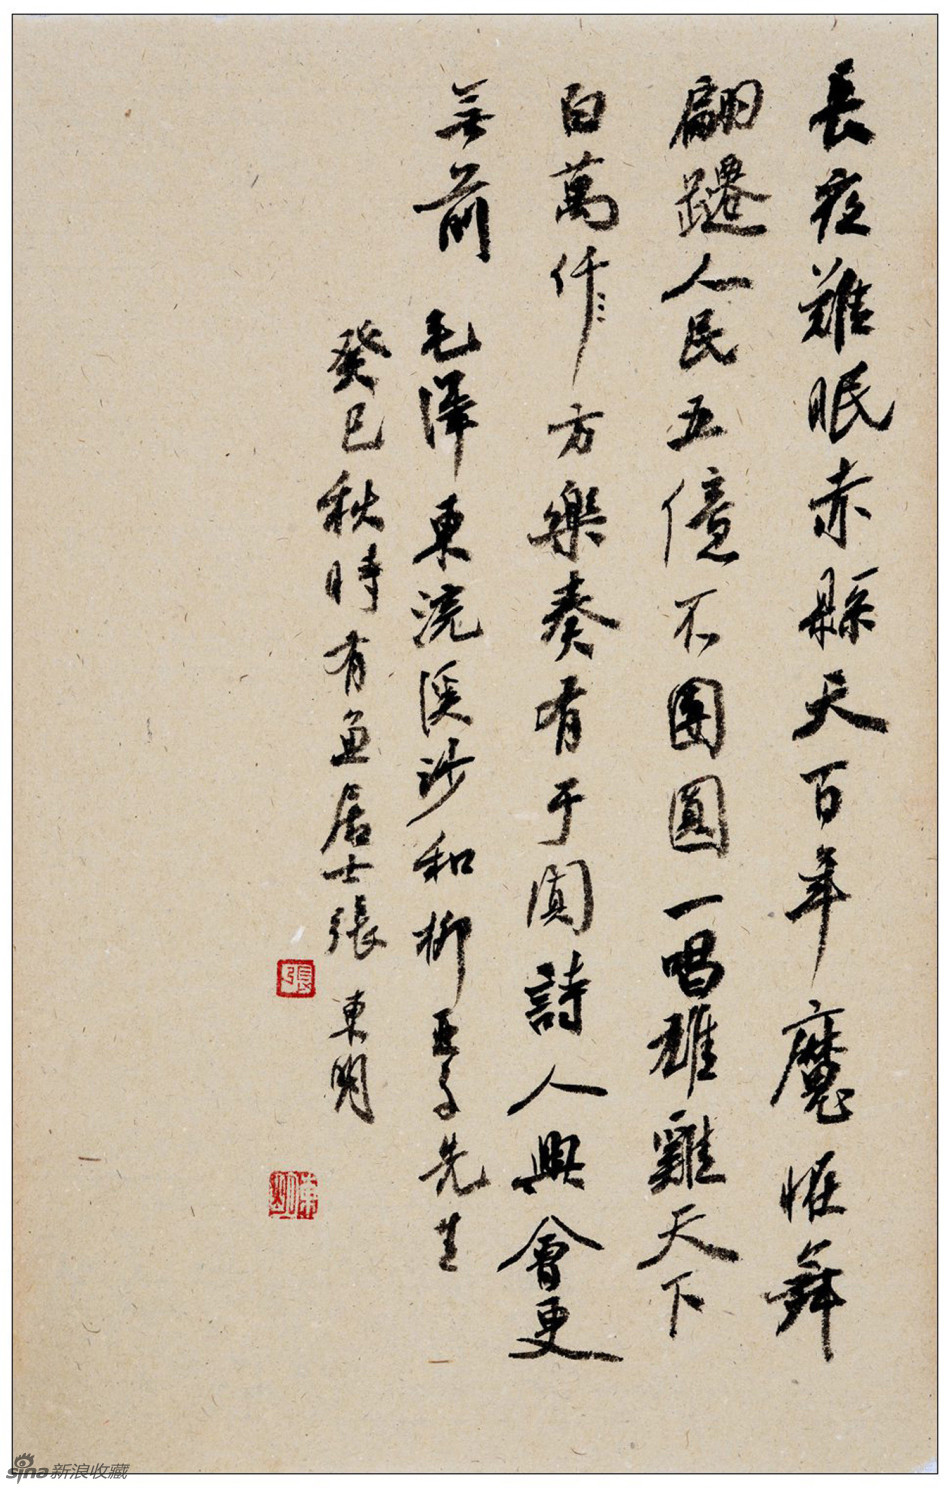 長夜難眠赤縣天百年魔怪舞
翩躚人民五億不團圓一唱雄雞天下
白萬仟方樂奏有于闐詩人興會更
無前 毛澤東浣溪沙和柳亞子先生
癸巳秋時有魚居士張東明
張
東明
sina新浪收藏